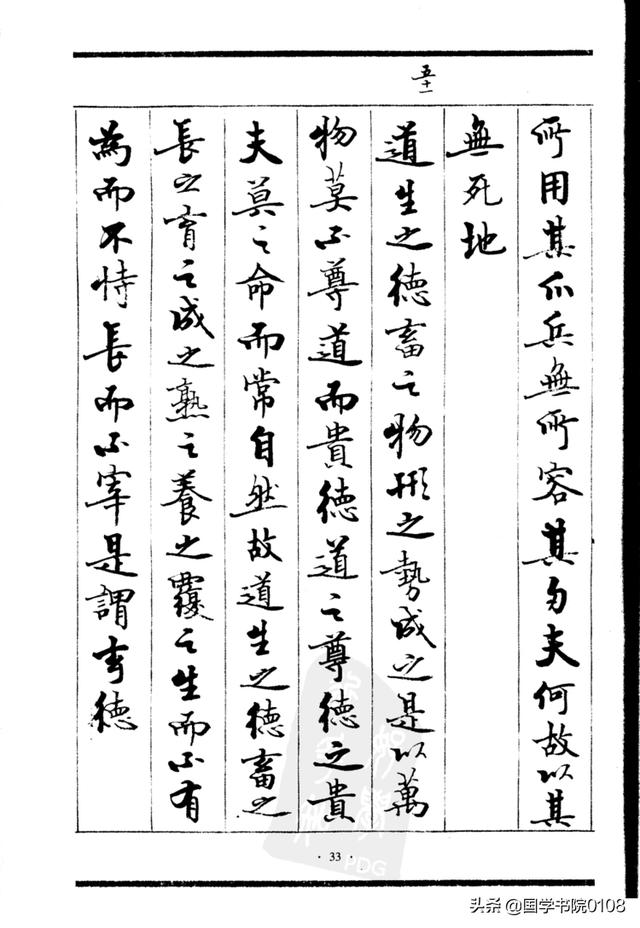 五十一
所用其爪兵無所容其刃夫何故以其
無死地
道生之德畜之物形之勢成之是以萬
物莫不尊道而貴德道之尊德之貴
夫莫之命而常自然故道生之德畜之
長之育之成之熟之養之覆之生而不有
為而不恃長而不宰是謂玄德
· 33 ·
PDG
头条 @国学书院0108